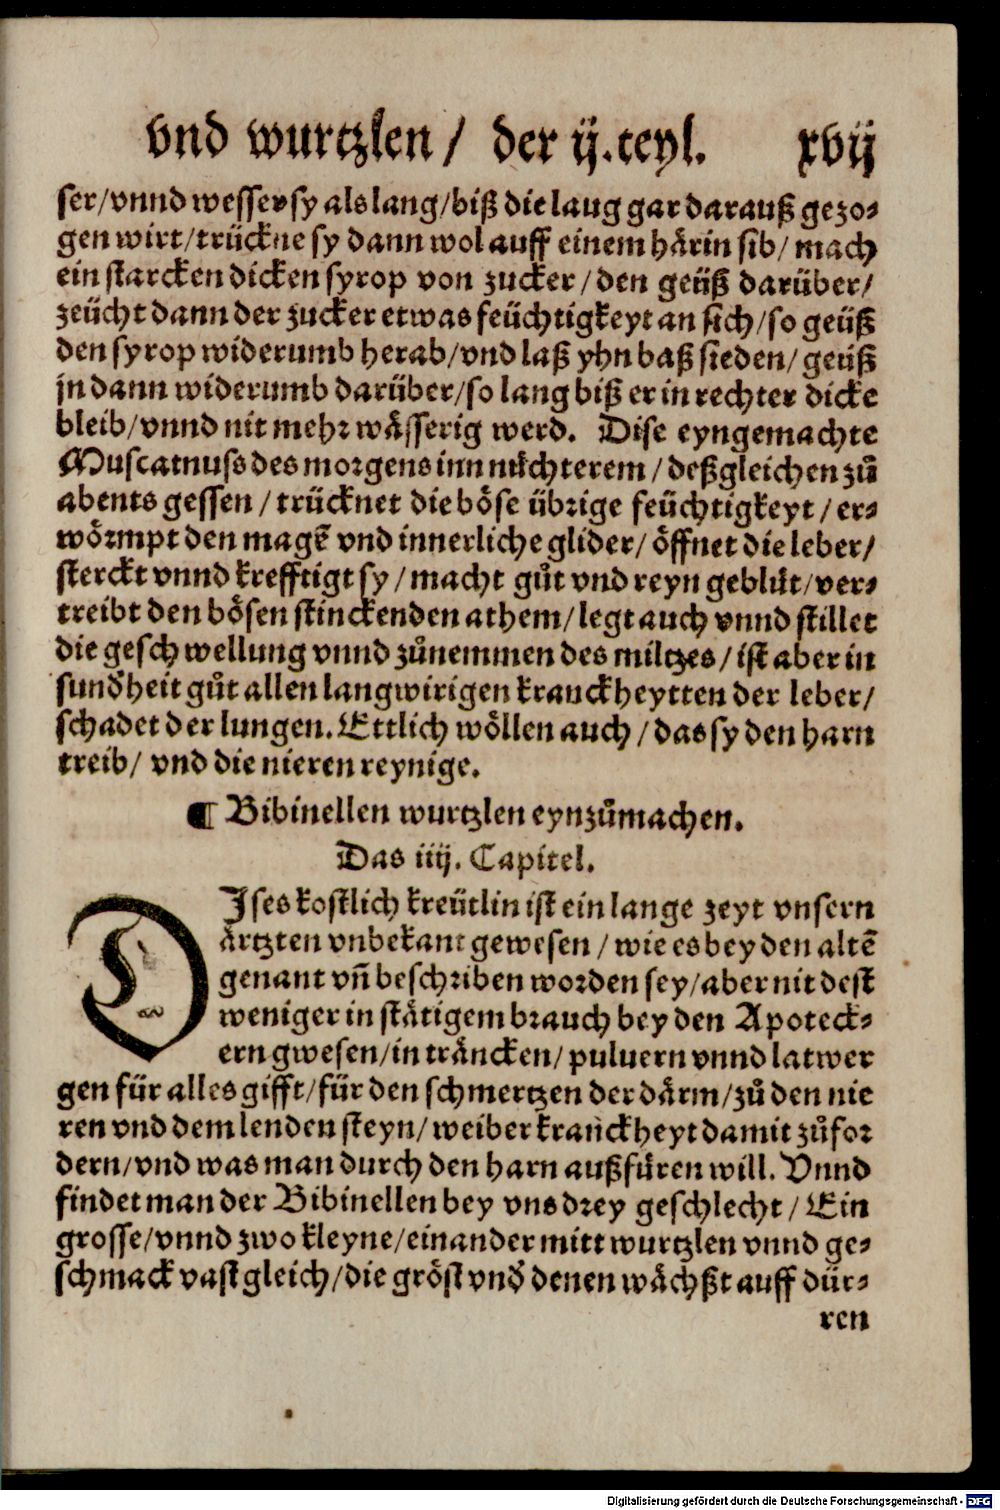 vnd wurtzlen / der ij. teyl. xvij
ser/vnnd wesser sy als lang/biß die laug gar darauß gezo⸗
gen wirt/trückne sy dann wol auff einem härin sib/ mach
ein starcken dicken syrop von zucker / den geüß darüber/
zeücht dann der zucker etwas feüchtigkeyt an sich/so geüß
den syrop widerumb herab/vnd laß yhn baß sieden/ geüß
jn dann widerumb darüber/so lang biß er in rechter dicke
bleib/vnnd nit mehr wässerig werd. Dise eyngemachte
Muscatnuss des morgens inn nüchterem / deßgleichen zů
abents gessen / trücknet die böse übrige feüchtigkeyt / er⸗
wörmpt den magẽ vnd innerliche glider/ öffnet die leber/
sterckt vnnd krefftigt sy / macht gůt vnd reyn geblüt/ver⸗
treibt den bösen stinckenden athem/legt auch vnnd stillet
die geschwellung vnnd zůnemmen des miltzes / ist aber in
sunďheit gůt allen langwirigen kranckheytten der leber/
schadet der lungen. Ettlich wöllen auch / das sy den harn
treib/ vnd die nieren reynige.
¶ Bibinellen wurtzlen eynzůmachen.
Das iiij. Capitel.
DIses kostlich kreütlin ist ein lange zeyt vnsern
ärtzten vnbekant gewesen / wie es bey den altẽ
genant vñ beschriben worden sey/aber nit dest
weniger in stätigem brauch bey den Apoteck⸗
ern gwesen/in träncken/puluern vnnd latwer
gen für alles gifft/für den schmertzen der därm/zů den nie
ren vnd dem lenden steyn/weiber kranckheyt damit zůfor
dern/vnd was man durch den harn außfüren will. Vnnd
findet man der Bibinellen bey vns drey geschlecht / Ein
grosse/vnnd zwo kleyne/einander mitt wurtzlen vnnd ge⸗
schmack vast gleich/die gröst vnď denen wächßt auff dür⸗
ren
Digitalisierung gefördert durch die Deutsche Forschungsgemeinschaft - DFG